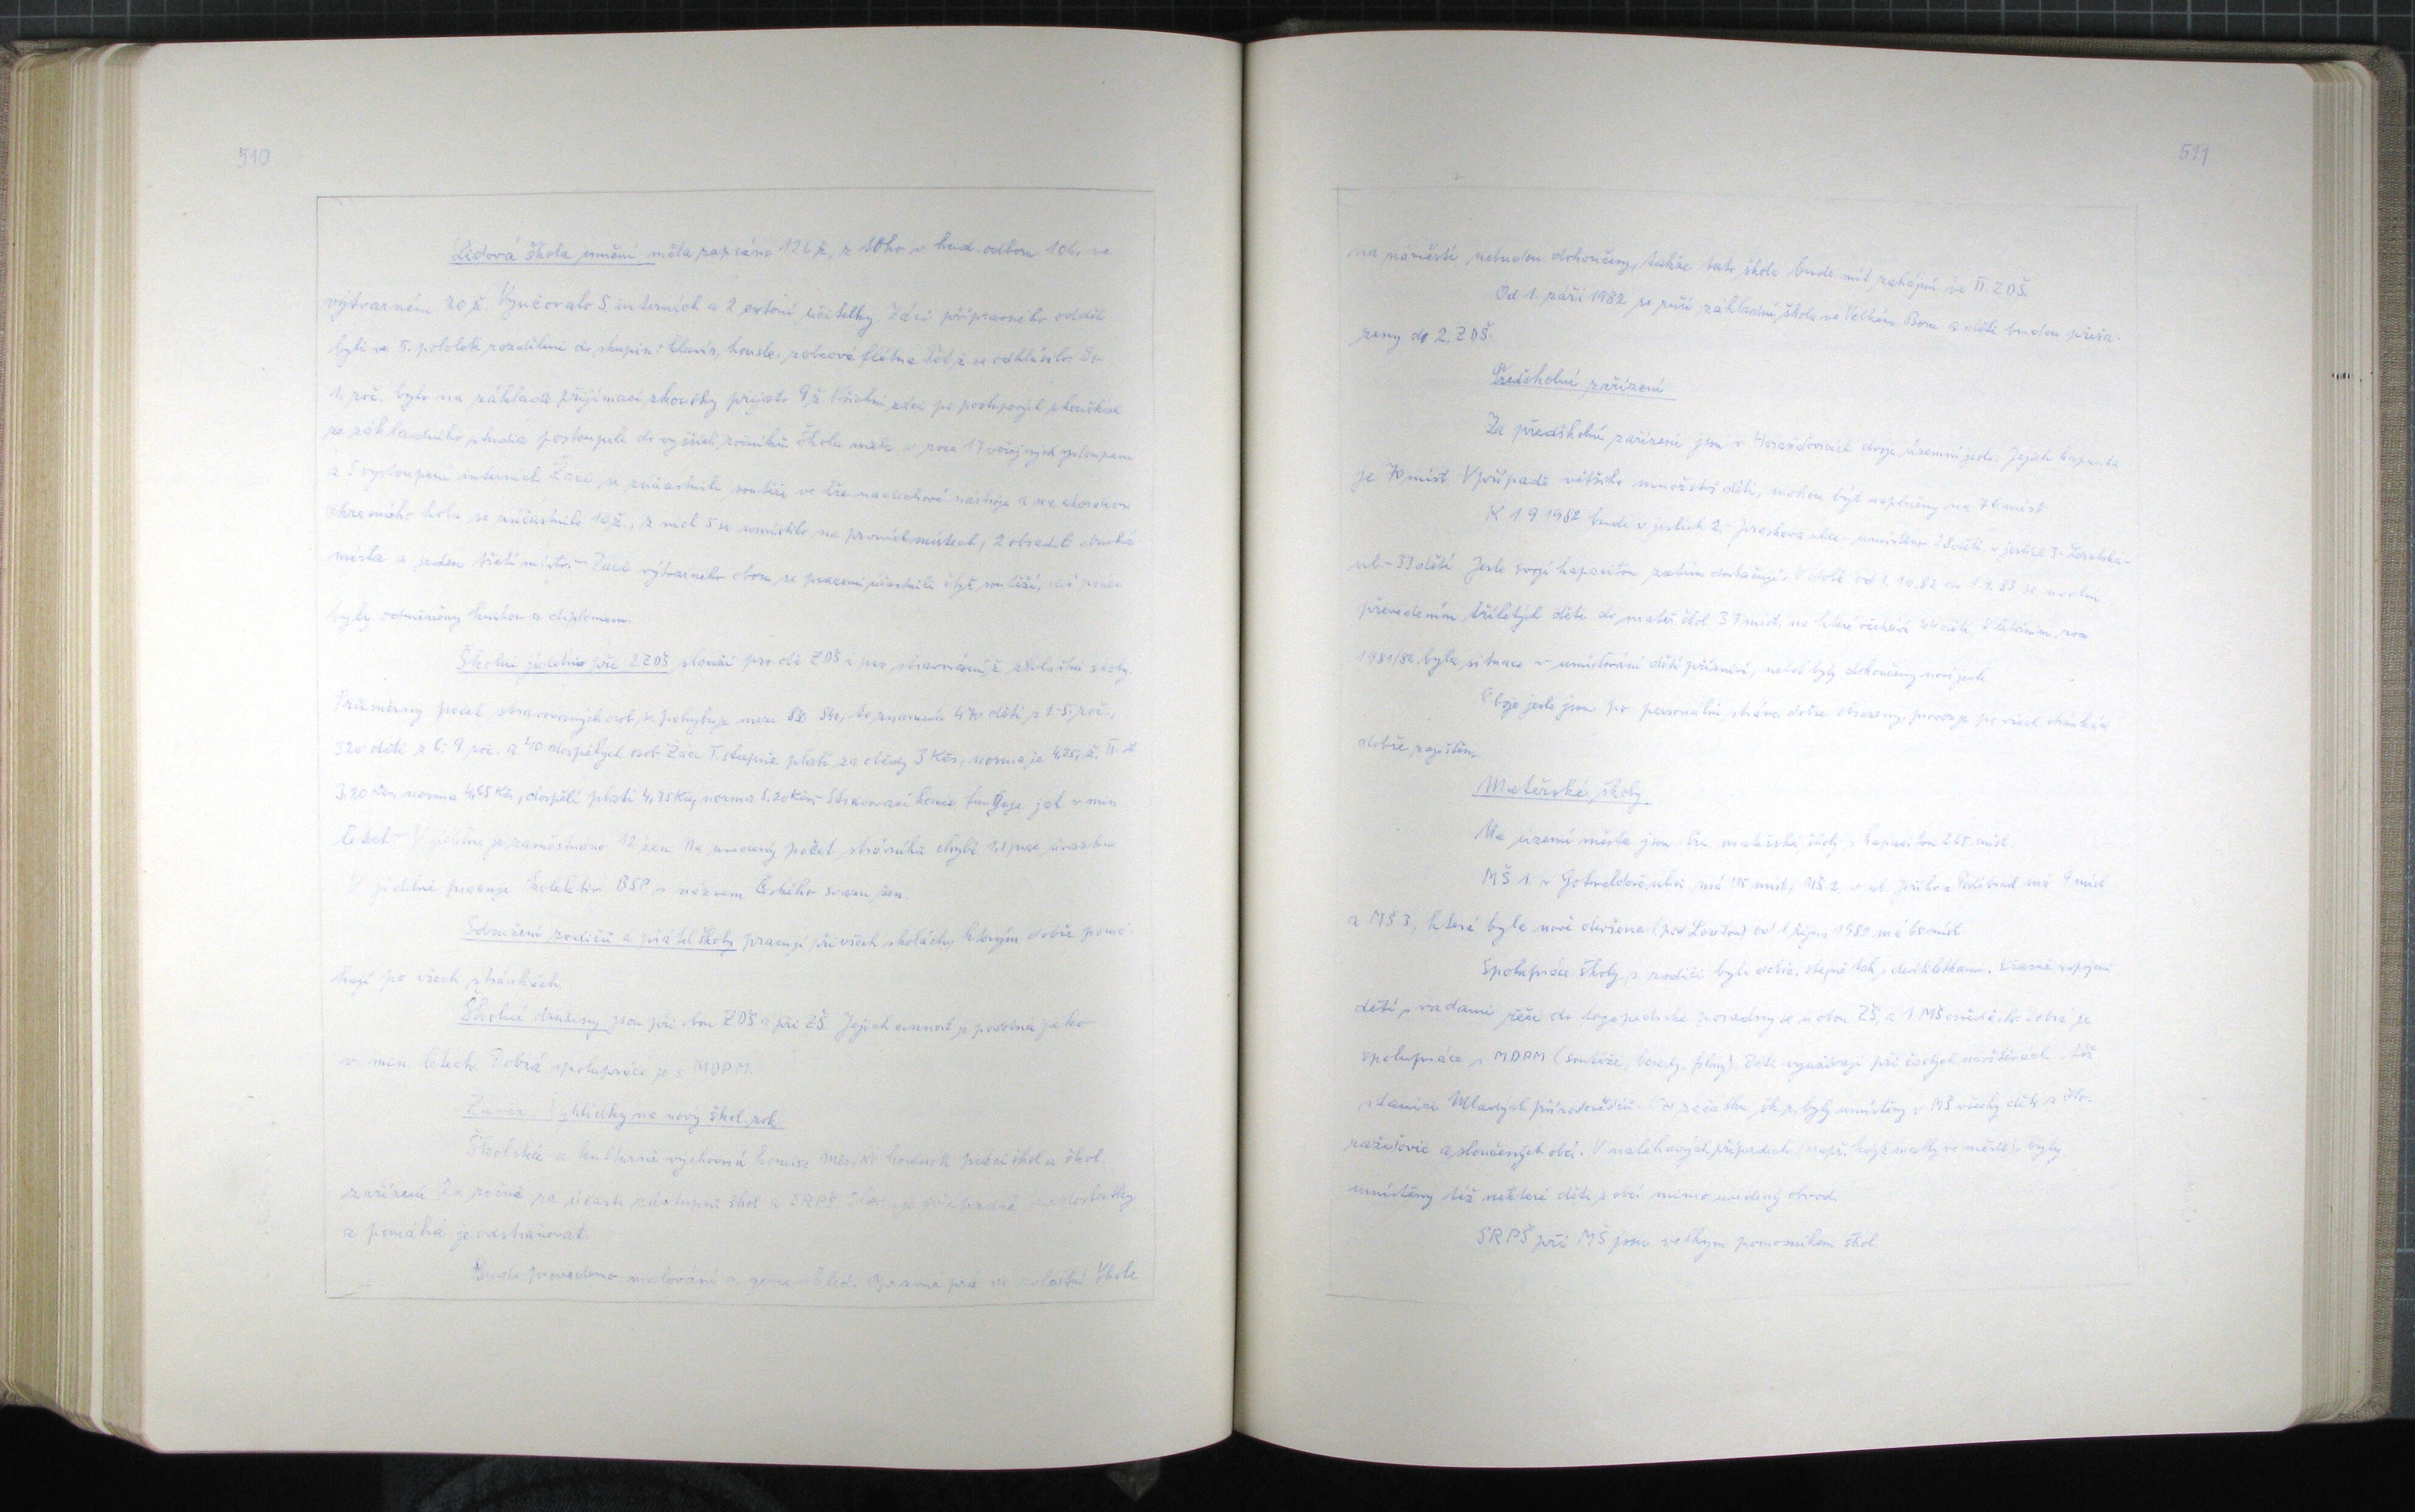 510
Lidová škola umění měla zapsáno 126 ž, z toho v hud. odboru 106, ve
výtvarném 20 ž. Vyučovalo 5 interních a 2 externí učitelky. Žáci přípravného odděl
byli ve II. pololetí rozděleni do skupin: klavír, housle, zobcová flétna Pět ž se odhlásilo Do
1. roč. bylo na základě přijímací zkoušky přijato 9 ž Všichni žáci po postupových zkouškách
ze základního studia postoupili do vyšších ročníků Škola měla v roce 17 veřejných vystoupení
a 5 vystoupení interních Žáci se zúčastnili soutěže ve hře na dechové nástroje a na akordeon
okresního kola se zúčastnilo 10 ž., z nich 5 se umístilo na prvních místech, 2 obsadili druhá
místa a jeden třetí místo. - Žáci výtvarného oboru se pracemi účastnili soutěží, práce
byly odměněny knihou a diplomem.
Školní jídelna při 2. ZDŠ slouží pro obě ZDŠ a pro stravování ž zvláštní školy.
Průměrný počet stravovaných osob, se pohybuje mezi 840, to znamená 470 dětí z 1-5. roč.,
320 dětí z 6. 9. roč. a 40 dospělých osob Žáci I. stupně platí za obědy 3 Kčs, norma je 4,25, ž. II. st
3,20 Kčs, norma 4,65 Kčs, dospělí platí 4,75 Kčs, norma 5,20 Kčs. - Stravovací komise funguje jak v min
letech - V jídelně je zaměstnáno 12 žen. Na uvedený počet strávníků chybí prac úvazku
V jídelně pracuje kolektiv BSP s názvem Českého svazu žen.
Sdružení rodičů a přátel školy pracují při všech školách, kterým dobře pomá-
hají po všech stránkách.
Školní družiny jsou při obou ZDŠ a při ZŠ. Jejich činnost je podobná jako
v min letech. Dobrá spolupráce je s MDPM.
Závěr. Vyhlídky na nový škol. rok
Školská a kulturně výchovná komise MěstNV hodnotí práci škol a škol.
zařízení za účasti zástupců škol a SRPŠ nedostatky
a pomáhá je odstraňovat.
Bude provedeno malování a gener. úklid. Opravné prá ve zvláštní škole
511
na náměstí nebudou dokončeny, takže tato škola bude mít zahájení ve II. ZDŠ.
Od 1. září 1982 se ruší základní škola ve Velkém Boru a děti budou přeřa-
zeny do 2. ZDŠ.
Předškolní zařízení
Za předškolní zařízení jsou v Horažďovicích dvoje územní jesle. Jejich kapacita
je 70 míst V případě většího množství dětí, mohou být naplněny na 76 míst.
K 1 9 1982 bude v jeslích 2. - Jiráskova ulice umístěno 28 dětí, v jeslích 3 - Loretská
ul - 33 dětí Jesle svojí kapacitou zatím dostačují. V době od 1. 10. 82 do 1 9. 83 se uvolní
převedením tříletých dětí do mateř. škol 37 míst, na které očekává 44 dětí V letošním roce
1981/82 byla situace v umísťování dětí příznivá, neboť byly dokončeny nové jesle
Oboje jesle jsou po personální stránce dobře obsazeny, provoz je po všech stránkách
dobře zajištěn.
Mateřské školy
Na území města jsou tři mateřské školy s kapacitou 265 míst
MŠ 1. v Gotwaldově ulici má 115 míst, MŠ 2. v ul. Jiřího z Poděbrad má 9 míst
a MŠ 3, která byla nově otevřena (pod Loretou) od 1. října 1981 má 60 míst
Spolupráce školy s rodiči byla dobrá, stejně tak s devítiletkami. Včasné zapojení
dětí s vadami řeči do logopedické poradny se u obou ZŠ a 1. MŠ osvědčilo Dobrá je
spolupráce s MDPM (soutěže, besedy, filmy) Děti využívají při častých návštěvách též
stanici Mladých přírodovědců. Od začátku šk. r. byly umístěny v MŠ všechny děti z Ho-
ražďovic a sloučených obcí. V naléhavých případech (např. když matky ve městě), byly
umístěny též některé děti z obcí mimo uvedený obvod.
SRPŠ při MŠ jsou velkým pomocníkem škol